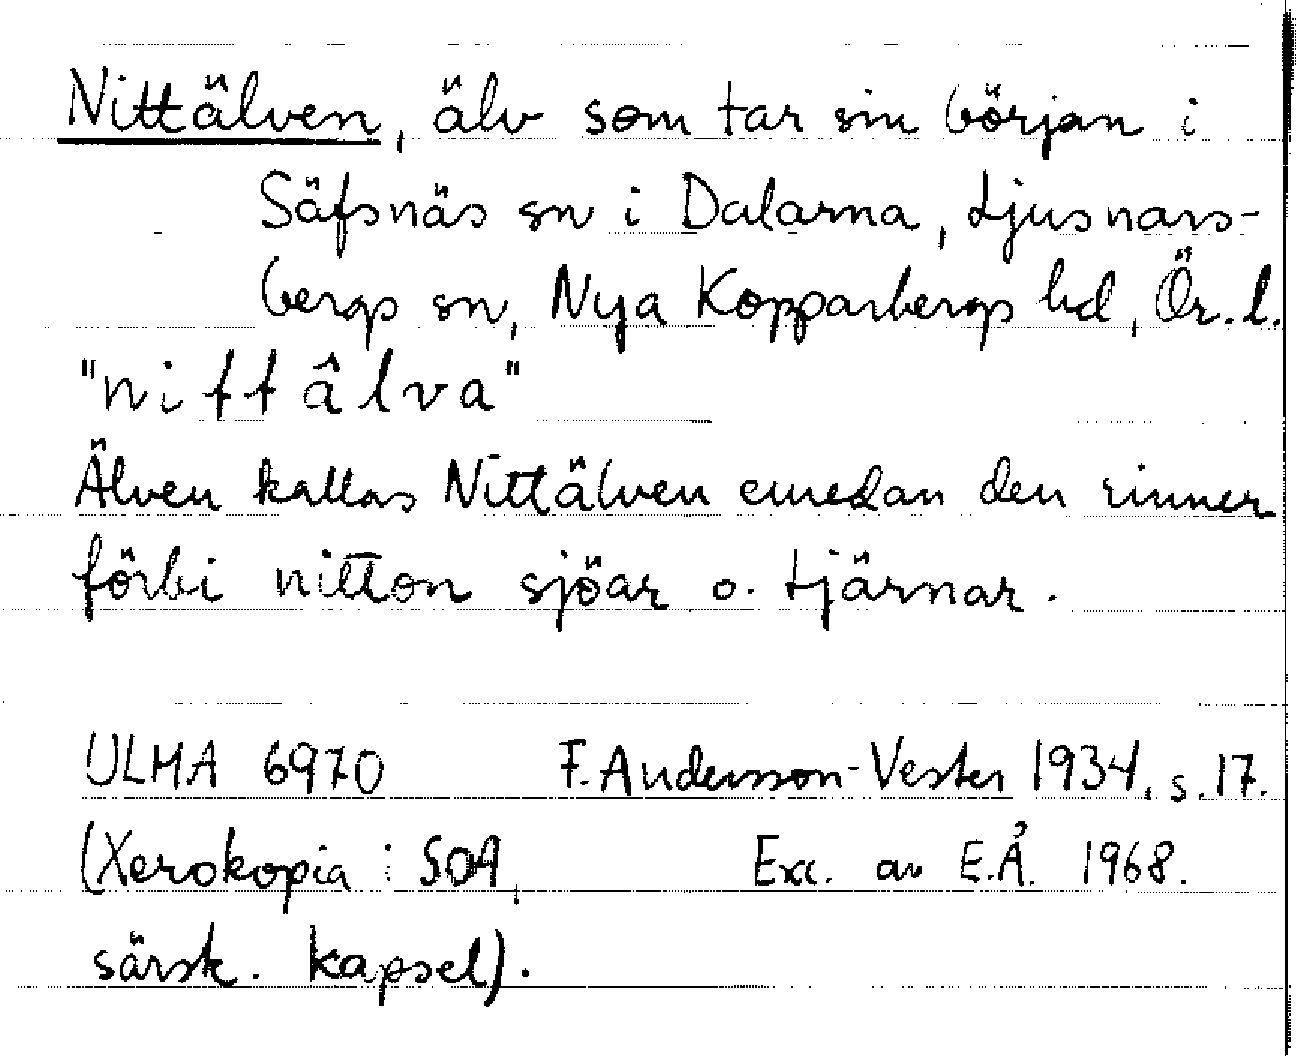 Nittälven, älv som tar sin början i
Säfsnäs sn i Dalarna, Ljusnars-
bergs sn, Nya Kopparbergs hd, Ör. l.
"nittâlva"
Älven kallas Nittälven emedan den rinner
förbi nitton sjöar o. tjärnar.
ULMA 6970 F. Andersson-Vester 1934, s. 17.
(Xerokopia i SOA, Exc. av E.Å. 1968.
särsk. kapsel).